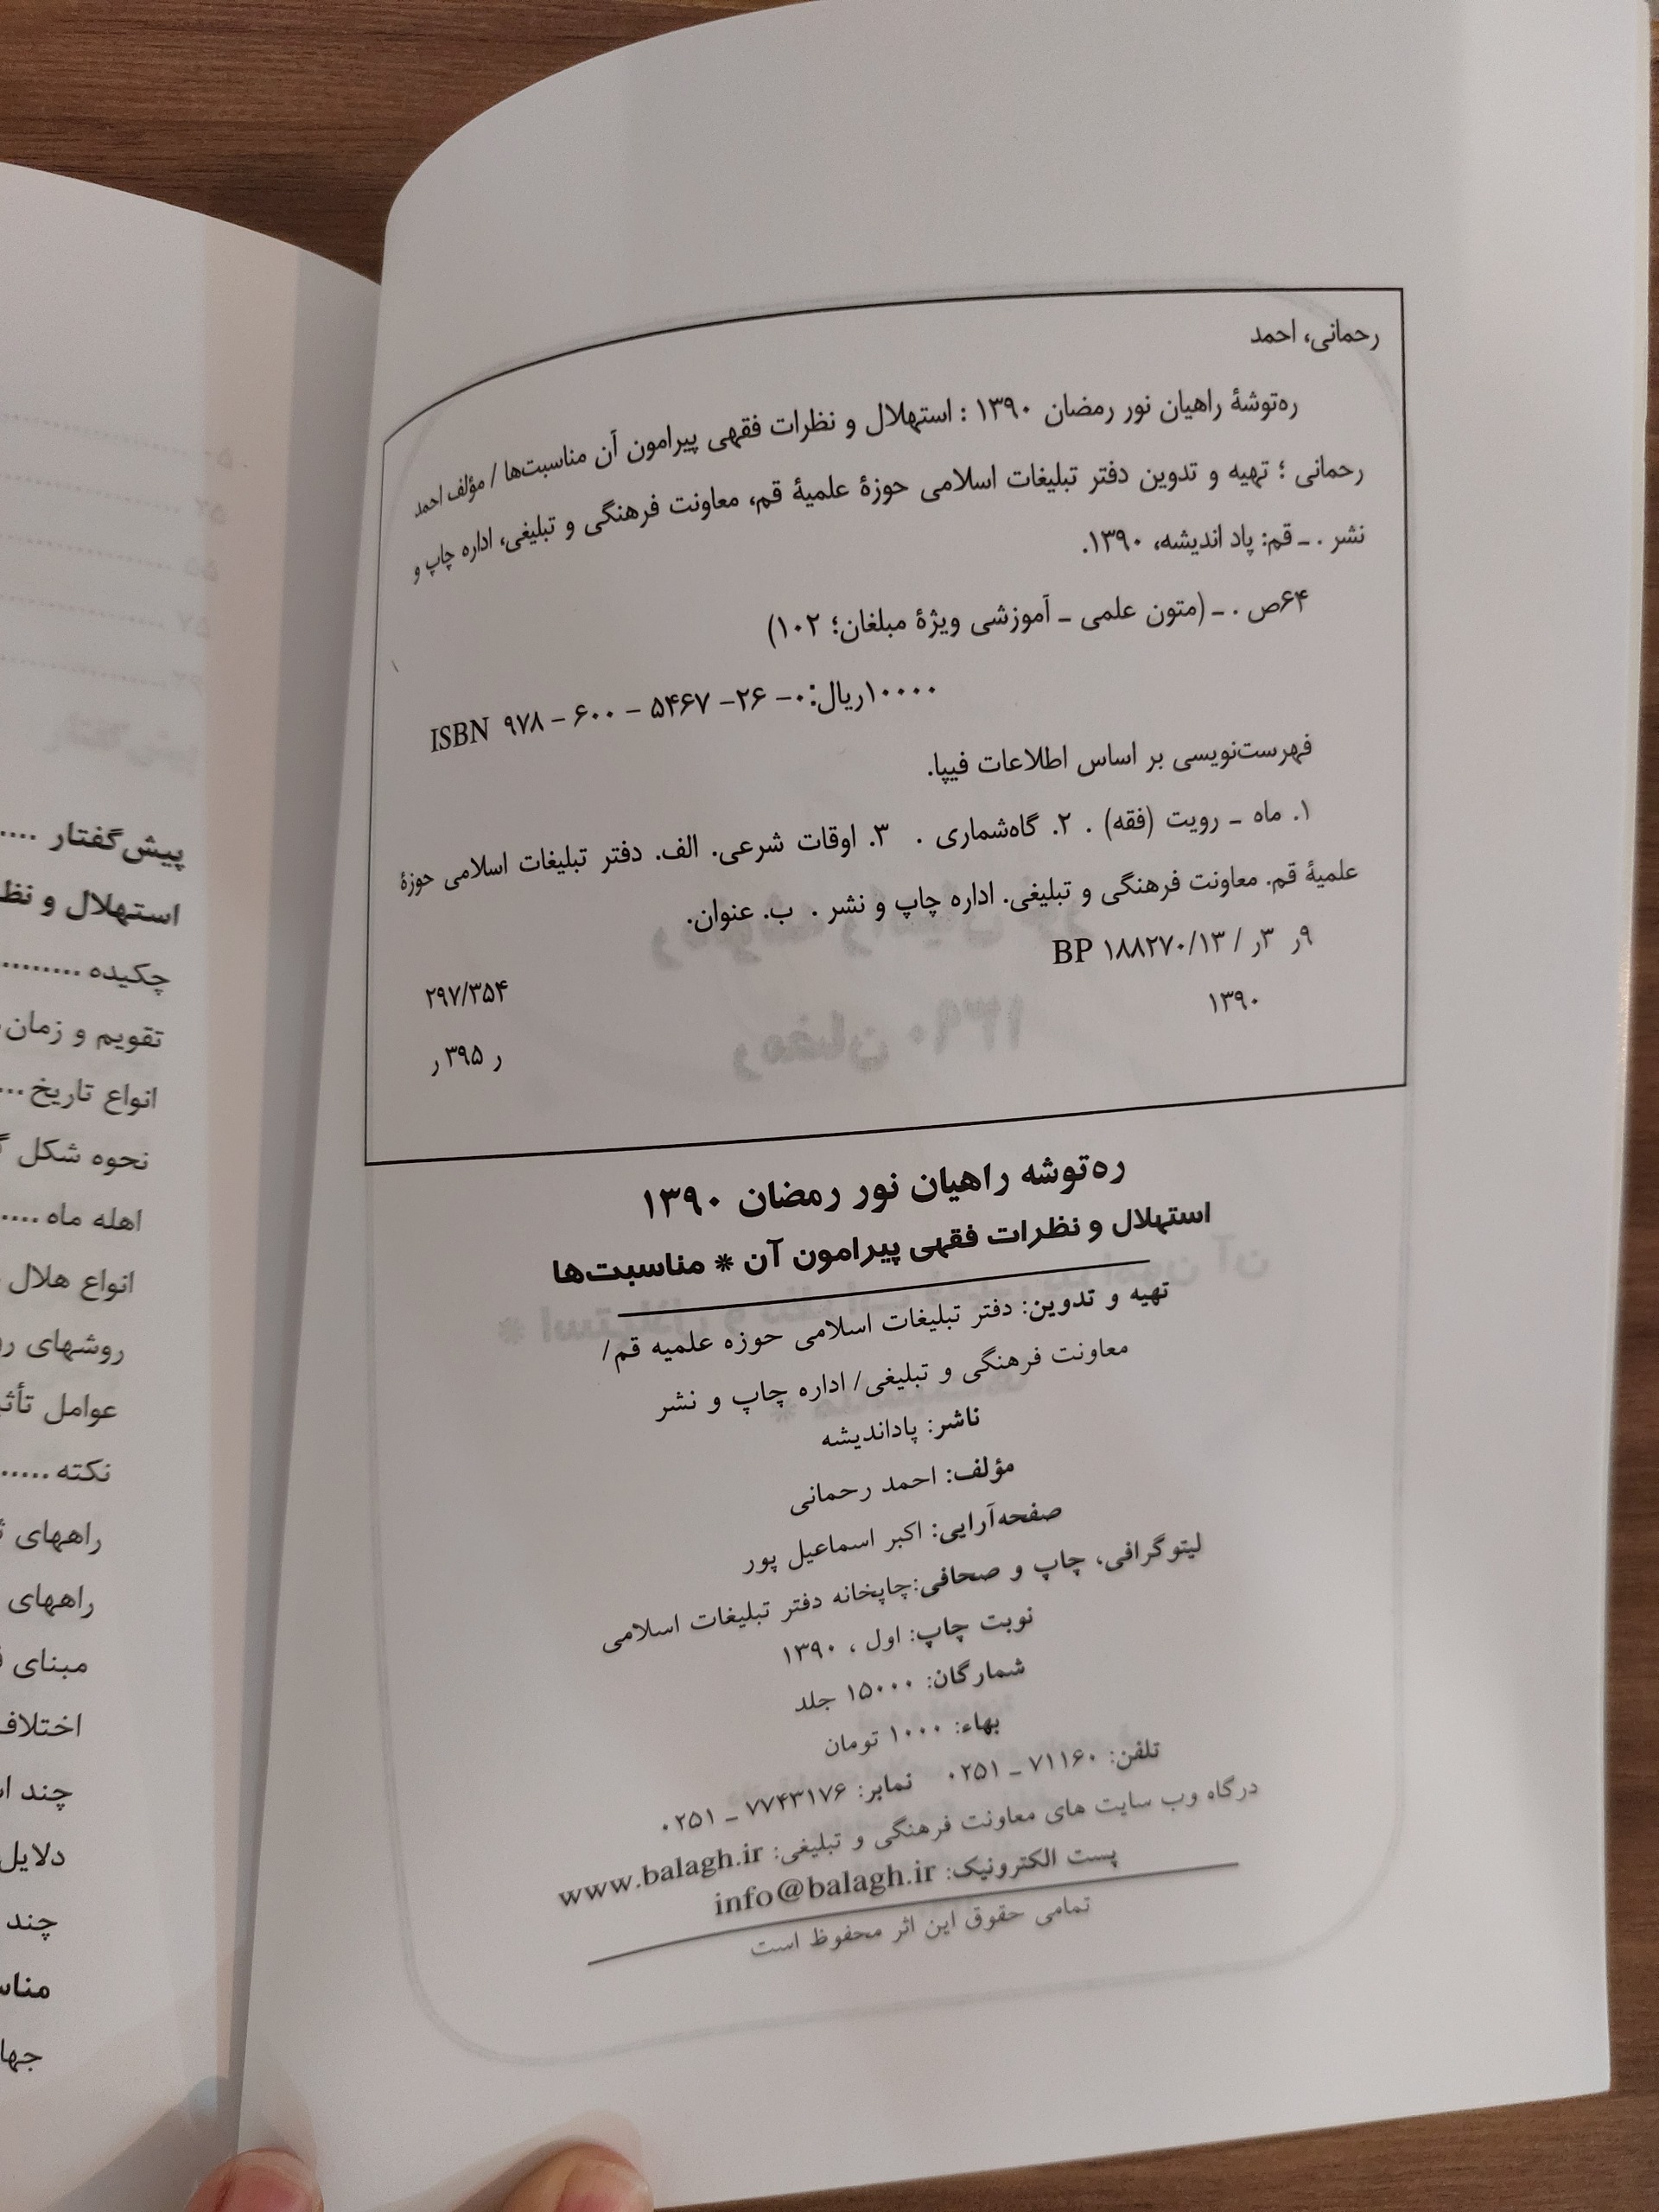 رحمانی، احمد
ره‌توشهٔ راهیان نور رمضان ۱۳۹۰ : استهلال و نظرات فقهی پیرامون آن مناسبت‌ها / مؤلف احمد
رحمانی ؛ تهیه و تدوین دفتر تبلیغات اسلامی حوزهٔ علمیهٔ قم، معاونت فرهنگی و تبلیغی، اداره چاپ و
نشر . ـ قم: پاد اندیشه، ۱۳۹۰.
۶۴ص . ـ (متون علمی ـ آموزشی ویژهٔ مبلغان؛ ۱۰۲)
۱۰۰۰۰ریال: ISBN ۹۷۸ – ۶۰۰ – ۵۴۶۷ –۲۶ –۰
فهرست‌نویسی بر اساس اطلاعات فیپا.
۱. ماه ـ رویت (فقه) . ۲. گاه‌شماری . ۳. اوقات شرعی. الف. دفتر تبلیغات اسلامی حوزهٔ
علمیهٔ قم. معاونت فرهنگی و تبلیغی. اداره چاپ و نشر . ب. عنوان.
۹ر ۳ر / BP ۱۸۸۲۷۰/۱۳
۲۹۷/۳۵۴
۱۳۹۰
ر ۳۹۵ ر
ره‌توشه راهیان نور رمضان ۱۳۹۰
استهلال و نظرات فقهی پیرامون آن * مناسبت‌ها
تهیه و تدوین: دفتر تبلیغات اسلامی حوزه علمیه قم/
معاونت فرهنگی و تبلیغی/ اداره چاپ و نشر
ناشر: پاداندیشه
مؤلف: احمد رحمانی
صفحه‌آرایی: اکبر اسماعیل پور
لیتوگرافی، چاپ و صحافی:چاپخانه دفتر تبلیغات اسلامی
نوبت چاپ: اول ، ۱۳۹۰
شمارگان: ۱۵۰۰۰ جلد
بهاء: ۱۰۰۰ تومان
تلفن: ۷۱۱۶۰ ـ ۰۲۵۱ نمابر: ۷۷۴۳۱۷۶ ـ ۰۲۵۱
درگاه وب سایت های معاونت فرهنگی و تبلیغی: www.balagh.ir
پست الکترونیک: info@balagh.ir
تمامی حقوق این اثر محفوظ است
پیش‌گفتار ....
استهلال و
چکیده .........
تقویم و زمان
انواع تاریخ ...
نحوه شکل
اهله ماه ....
انواع هلال
روشهای
عوامل
نکته .....
راههای
راههای
مبنای
اختلاف
چند
دلایل
چند